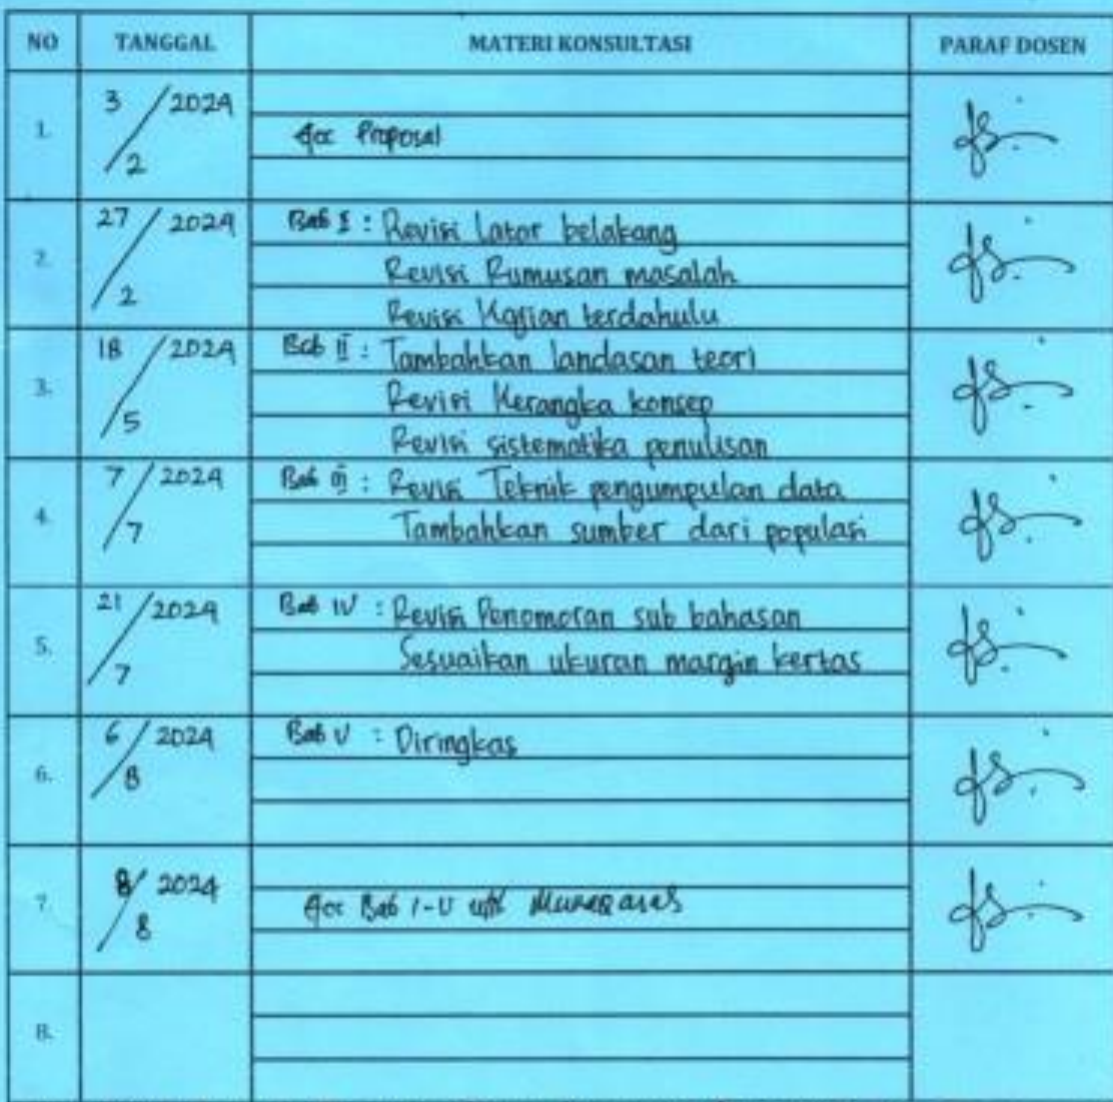 NO TANGGAL MATERI KONSULTASI PARAF DOSEN
1. 3/2 2024 Acc Proposal
2. 27/2 2024 Bab I : Revisi Lator belakang
Revisi Rumusan masalah
Revisi Kajian terdahulu
3. 18/5 2024 Bab II : Tambahkan landasan teori
Revisi Kerangka konsep
Revisi sistematika penulisan
4. 7/7 2024 Bab III : Revisi Teknik pengumpulan data
Tambahkan sumber dari populasi
5. 21/7 2024 Bab IV : Revisi Penomoran sub bahasan
Sesuaikan ukuran margin kertas
6. 6/8 2024 Bab V : Diringkas
7. 8/8 2024 Acc Bab I-V utk Munaqasah
8.